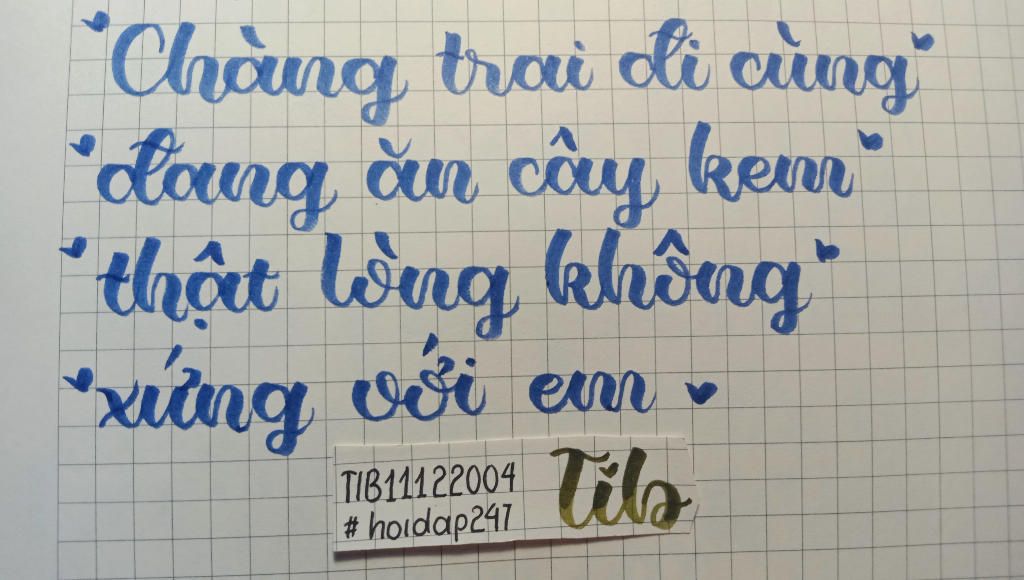 Chàng trai đi cùng
đang ăn cây kem
thật lòng không
xứng với em
TIB11122004
#hoidap247
Tib